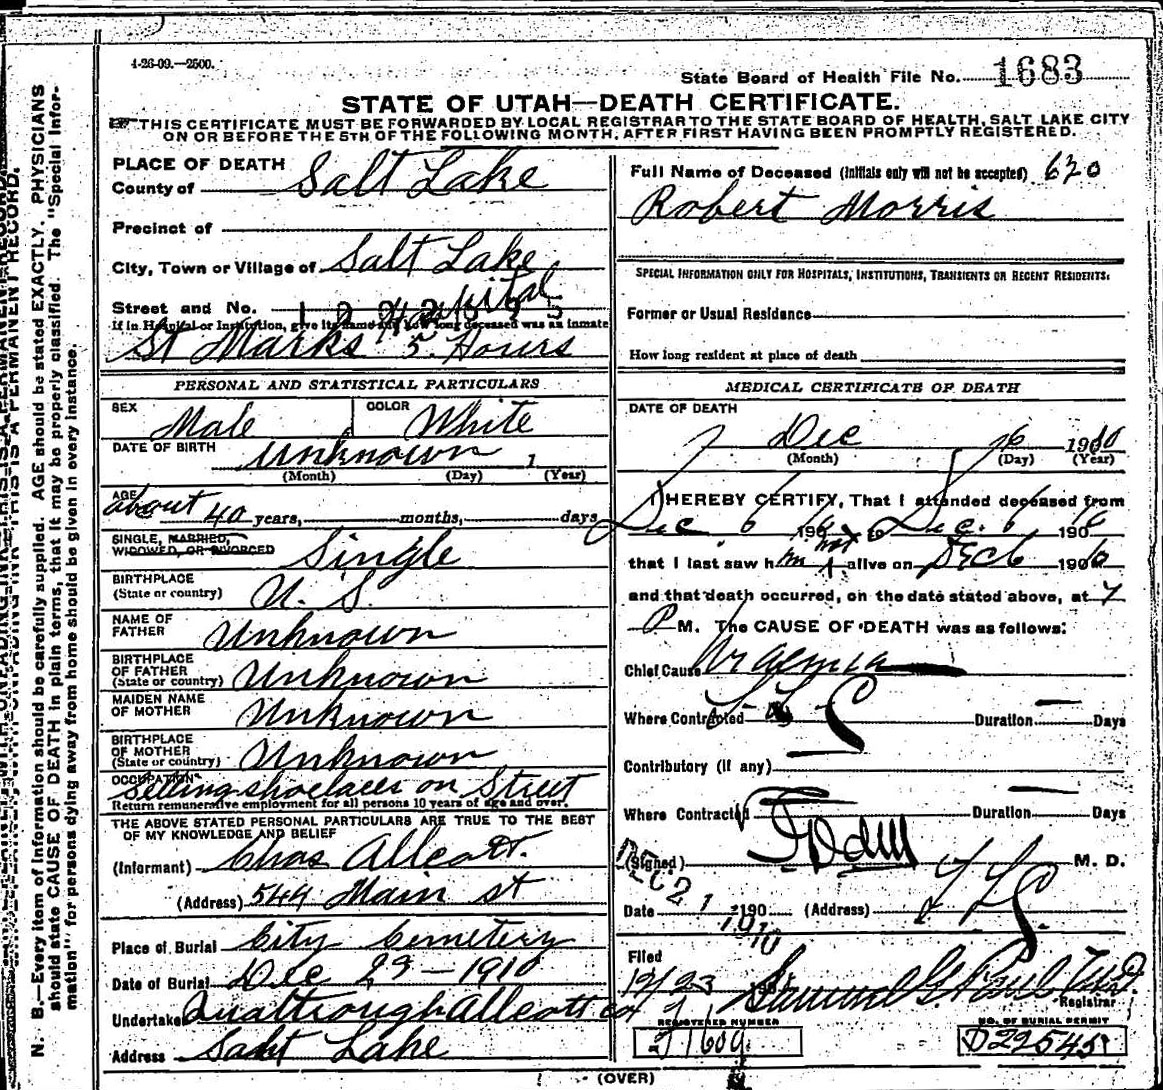 1-26-09.—2500.
State Board of Health File No. 1683
STATE OF UTAH—DEATH CERTIFICATE.
THIS CERTIFICATE MUST BE FORWARDED BY LOCAL REGISTRAR TO THE STATE BOARD OF HEALTH, SALT LAKE CITY
ON OR BEFORE THE 5TH OF THE FOLLOWING MONTH, AFTER FIRST HAVING BEEN PROMPTLY REGISTERED.
PLACE OF DEATH
County of Salt Lake
Precinct of
City, Town or Village of Salt Lake
Street and No. Hospital
If in Hospital or Institution, give its name and how long deceased was an inmate
St Marks 5 Hours
PERSONAL AND STATISTICAL PARTICULARS
SEX Male COLOR White
DATE OF BIRTH Unknown 1
(Month) (Day) (Year)
AGE about 40 years, months, days
SINGLE, MARRIED, WIDOWED, OR DIVORCED Single
BIRTHPLACE
(State or country) U. S.
NAME OF
FATHER Unknown
BIRTHPLACE
OF FATHER
(State or country) Unknown
MAIDEN NAME
OF MOTHER Unknown
BIRTHPLACE
OF MOTHER
(State or country) Unknown
OCCUPATION
Selling shoelaces on Street
Return remunerative employment for all persons 10 years of age and over.
THE ABOVE STATED PERSONAL PARTICULARS ARE TRUE TO THE BEST
OF MY KNOWLEDGE AND BELIEF
(Informant) Chas Allcott.
(Address) 544 Main st
Place of Burial City Cemetery
Date of Burial Dec 23-1910
Undertaker Qualtrough Allcott co
Address Salt Lake
Full Name of Deceased (Initials only will not be accepted) 620
Robert Morris
SPECIAL INFORMATION ONLY FOR HOSPITALS, INSTITUTIONS, TRANSIENTS OR RECENT RESIDENTS.
Former or Usual Residence
How long resident at place of death
MEDICAL CERTIFICATE OF DEATH
DATE OF DEATH
Dec 6 1910
(Month) (Day) (Year)
I HEREBY CERTIFY, That I attended deceased from
Dec 6 190 to Dec. 6 190
that I last saw him not alive on Dec 6 1910
and that death occurred, on the date stated above, at 7
P M. The CAUSE OF DEATH was as follows:
Chief Cause Uraemia
Where Contracted Duration Days
Contributory (if any)
Where Contracted Duration Days
(Signed) M. D.
DEC 21 1910
Date 190 (Address)
Filed
12/23 190
Registrar
REGISTERED NUMBER
1609
NO. OF BURIAL PERMIT
D22545
(OVER)
N. B.—Every item of Information should be carefully supplied. AGE should be stated EXACTLY. PHYSICIANS
should state CAUSE OF DEATH in plain terms, that it may be properly classified. The "Special Infor-
mation" for persons dying away from home should be given in every instance.
THIS IS A PERMANENT RECORD.